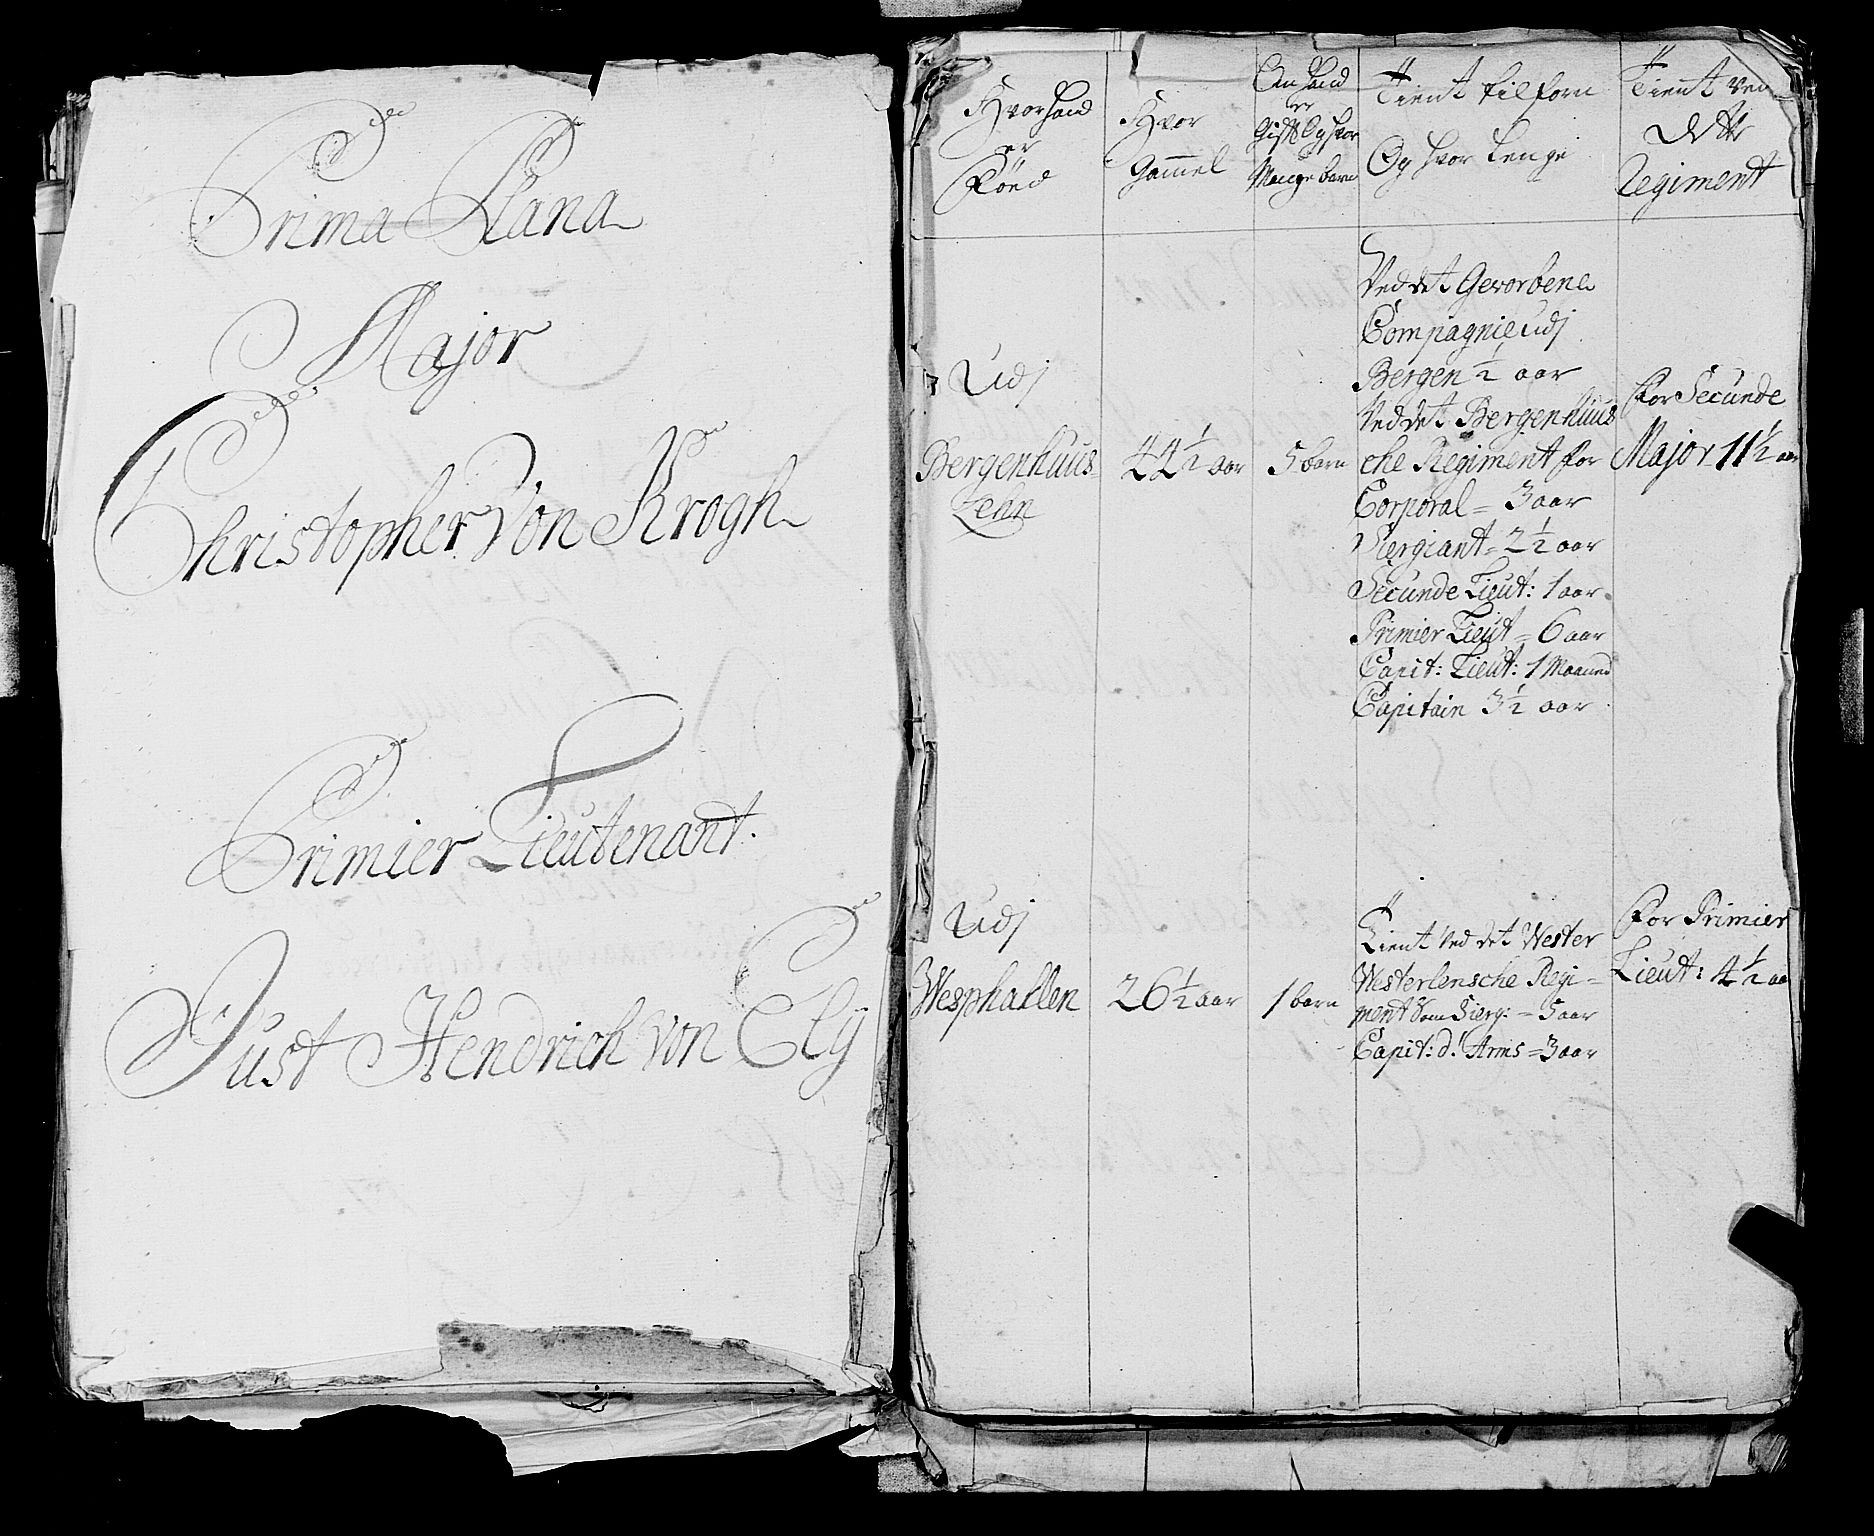 Prima Plana
Major
Christopher Von Krogh
Primier Lieutenant.
Just Hendrich von Ely
Hvor hand
er
Föed
Hvor
Gammel
Om hand
er
Gift Og hvor
Mange barn
Tient tilforn
Og hvor Lenge
Tient ved
Dette
Regiment
Udj
Bergenhuus
Lehn
44 1/2 aar
5 barn
Ved det Gevorbene
Compagnie udj
Bergen 1/2 aar
Ved det Bergenhuus
che Regiment for
Corporal = 3 aar
Siergiant = 2 1/2 aar
Secunde Lieut: 1 aar
Primier Lieut = 6 aar
Capit: Lieut: 1 Maaned
Capitain 3 1/2 aar
For Secunde
Major 11 1/2 aar
Udj
Wesphallen
26 1/2 aar
1 barn
Tient Ved det Wester
Westerlensche Regi=
ment Som Sierg: = 5 aar
Capit: d' Arms = 3 aar
For Primier
Lieut: 4 1/2 aar